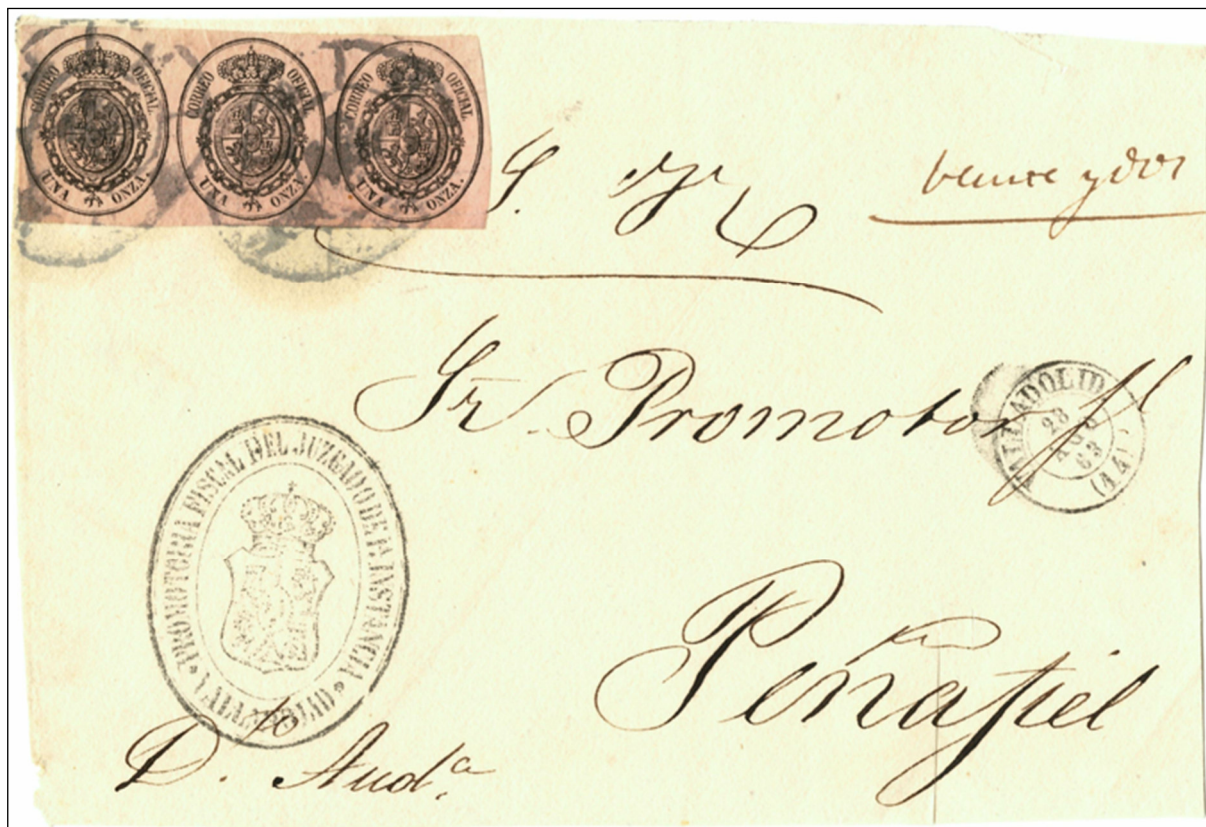 CORREO OFICIAL
UNA ONZA.
CORREO OFICIAL
UNA ONZA.
CORREO OFICIAL
UNA ONZA.
S.
veinte y dos
Sr. Promotor fl
VALLADOLID
28
AGO
63
(14)
PROMOTORIA FISCAL DEL JUZGADO DE 1A INSTANCIA
VALLADOLID
Peñafiel
D. to Aud.a